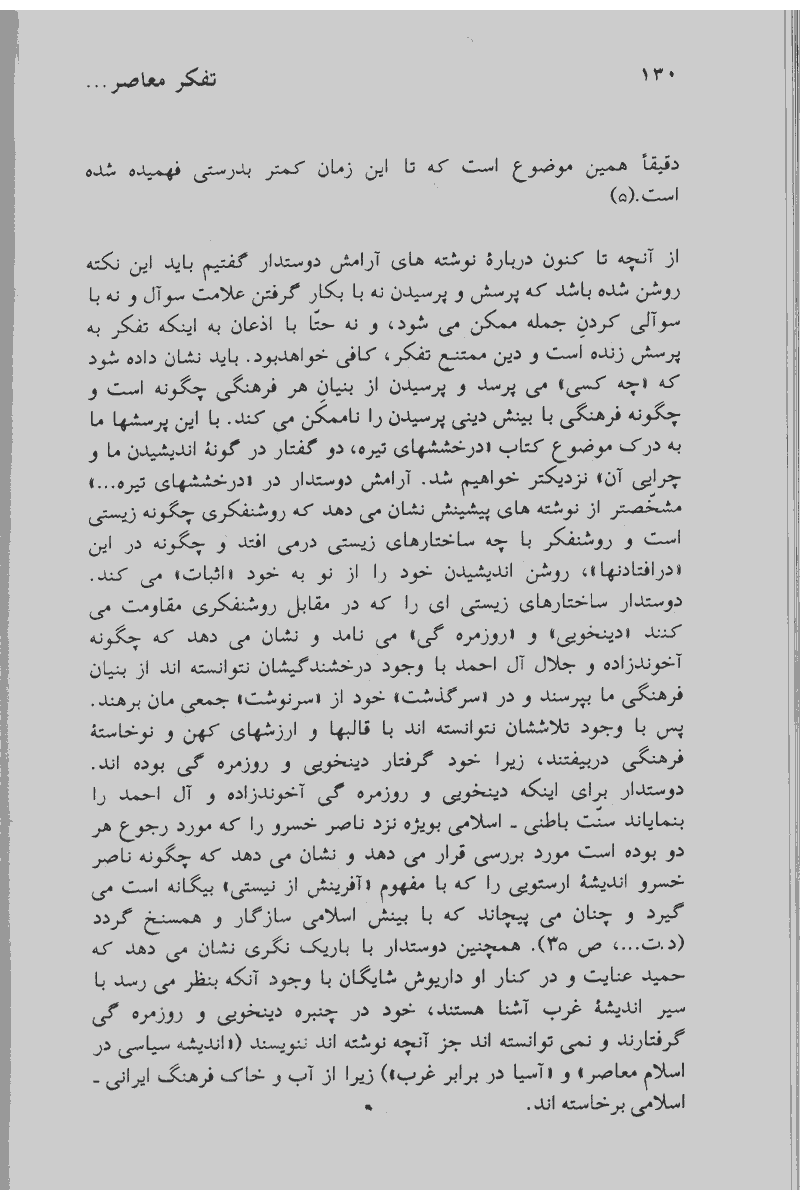 ۱۳۰
تفکر معاصر...
دقیقاً همین موضوع است که تا این زمان کمتر بدرستی فهمیده شده
است.(۵)
از آنچه تا کنون دربارهٔ نوشته های آرامش دوستدار گفتیم باید این نکته
روشن شده باشد که پرسش و پرسیدن نه با بکار گرفتن علامت سوآل و نه با
سوآلی کردنِ جمله ممکن می شود، و نه حتّا با اذعان به اینکه تفکر به
پرسش زنده است و دین ممتنع تفکر، کافی خواهدبود. باید نشان داده شود
که «چه کسی» می پرسد و پرسیدن از بنیانِ هر فرهنگی چگونه است و
چگونه فرهنگی با بینش دینی پرسیدن را ناممکن می کند. با این پرسشها ما
به درک موضوع کتاب «درخششهای تیره، دو گفتار در گونهٔ اندیشیدن ما و
چرایی آن» نزدیکتر خواهیم شد. آرامش دوستدار در «درخششهای تیره...»
مشخّصتر از نوشته های پیشینش نشان می دهد که روشنفکری چگونه زیستی
است و روشنفکر با چه ساختارهای زیستی درمی افتد و چگونه در این
«درافتادنها»، روشن اندیشیدن خود را از نو به خود «اثبات» می کند.
دوستدار ساختارهای زیستی ای را که در مقابل روشنفکری مقاومت می
کنند «دینخویی» و «روزمره گی» می نامد و نشان می دهد که چگونه
آخوندزاده و جلال آل احمد با وجود درخشندگیشان نتوانسته اند از بنیان
فرهنگی ما بپرسند و در «سرگذشت» خود از «سرنوشت» جمعی مان برهند.
پس با وجود تلاششان نتوانسته اند با قالبها و ارزشهای کهن و نوخاستهٔ
فرهنگی دربیفتند، زیرا خود گرفتار دینخویی و روزمره گی بوده اند.
دوستدار برای اینکه دینخویی و روزمره گی آخوندزاده و آل احمد را
بنمایاند سنّت باطنی ـ اسلامی بویژه نزد ناصر خسرو را که مورد رجوع هر
دو بوده است مورد بررسی قرار می دهد و نشان می دهد که چگونه ناصر
خسرو اندیشهٔ ارستویی را که با مفهوم «آفرینش از نیستی» بیگانه است می
گیرد و چنان می پیچاند که با بینش اسلامی سازگار و همسنخ گردد
(د.ت...، ص ۳۵). همچنین دوستدار با باریک نگری نشان می دهد که
حمید عنایت و در کنار او داریوش شایگان با وجود آنکه بنظر می رسد با
سیر اندیشهٔ غرب آشنا هستند، خود در چنبره دینخویی و روزمره گی
گرفتارند و نمی توانسته اند جز آنچه نوشته اند ننویسند («اندیشه سیاسی در
اسلام معاصر» و «آسیا در برابر غرب») زیرا از آب و خاک فرهنگ ایرانی ـ
اسلامی برخاسته اند.